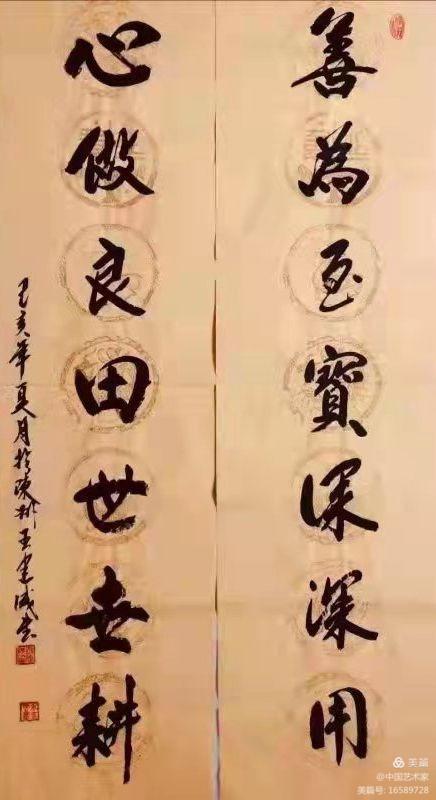 善為至寶深深用
心做良田世世耕
己亥年夏月於陳州王建成書
美篇
@中国艺术家
美篇号: 16589728